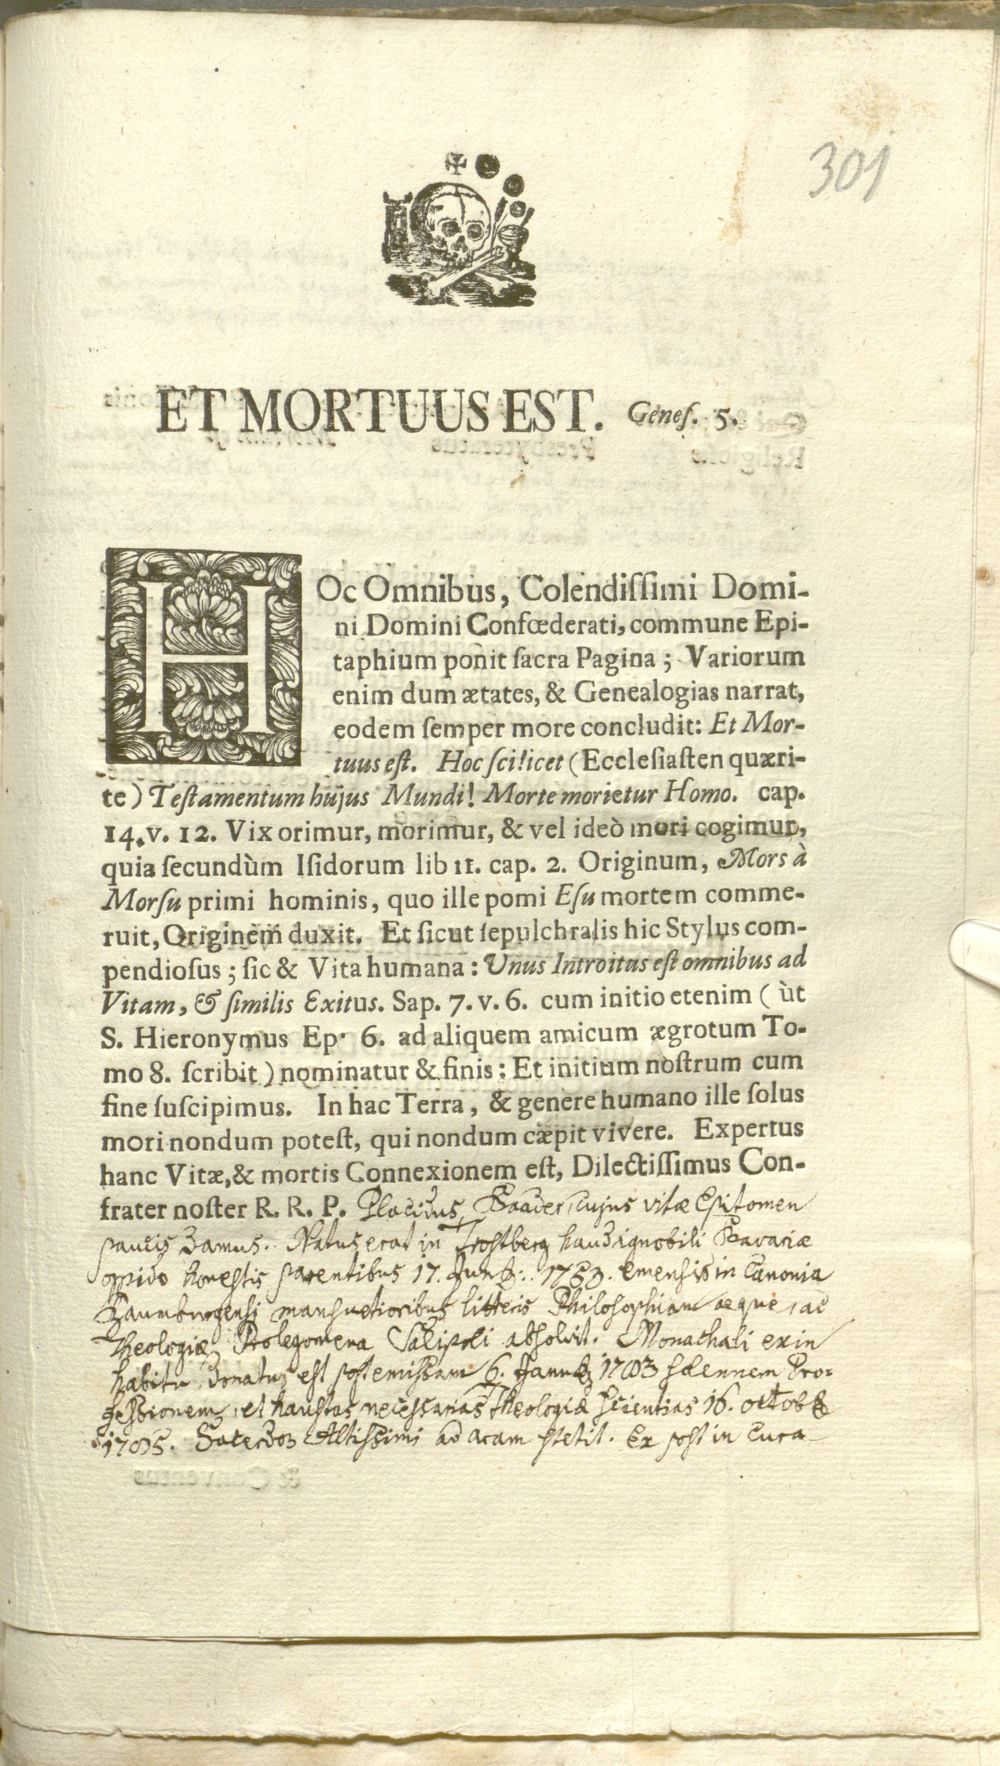 301
ET MORTUUS EST. Geneſ. 5.
HOc Omnibus, Colendiſſimi Domi-
ni Domini Confœderati, commune Epi-
taphium ponit ſacra Pagina; Variorum
enim dum ætates, & Genealogias narrat,
eodem ſemper more concludit: Et Mor-
tuus eſt. Hoc ſcilicet (Eccleſiaſten quæri-
te) Teſtamentum hujus Mundi! Morte morietur Homo. cap.
14. v. 12. Vix orimur, morimur, & vel ideò mori cogimur,
quia ſecundùm Iſidorum lib 11. cap. 2. Originum, Mors à
Morſu primi hominis, quo ille pomi Eſu mortem comme-
ruit, Originem duxit. Et ſicut ſepulchralis hic Stylus com-
pendioſus; ſic & Vita humana: Unus Introitus eſt omnibus ad
Vitam, & ſimilis Exitus. Sap. 7. v. 6. cum initio etenim (ùt
S. Hieronymus Ep. 6. ad aliquem amicum ægrotum To-
mo 8. ſcribit) nominatur & finis: Et initium noſtrum cum
fine ſuſcipimus. In hac Terra, & genere humano ille ſolus
mori nondum poteſt, qui nondum cæpit vivere. Expertus
hanc Vitæ, & mortis Connexionem eſt, Dilectiſſimus Con-
frater noſter R. R. P. Placidus Baader, cujus vitæ Epitomen
paucis damus. Natus erat in Trostberg haud ignobili Bavariæ
oppido honestis parentibus 17. emensis in Canonia
Baumburgensi mansuetioribus litteris Philosophiam æque, ac
Theologiæ Prolegomena absolvit. Monachali exin
habitu donatus est post emissam 6. 1703 solennem Pro-
fessionem, et haustas necessarias Theologiæ scientias 16. octob
1705. Sacerdos Altissimi ad aram stetit. Ex post in Cura-